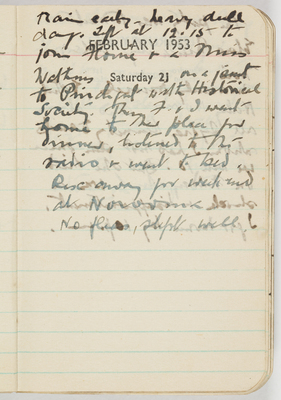 Rain early. heavy dull
day. Left at 12.15 to
FEBRUARY 1953
join Home & a Miss
Saturday 21
on a jaunt
to with Historical
Society. Then & I went
home to the place for
dinner, listened to the
radio & went to bed.
away for week end
at
No fleas, slept well!